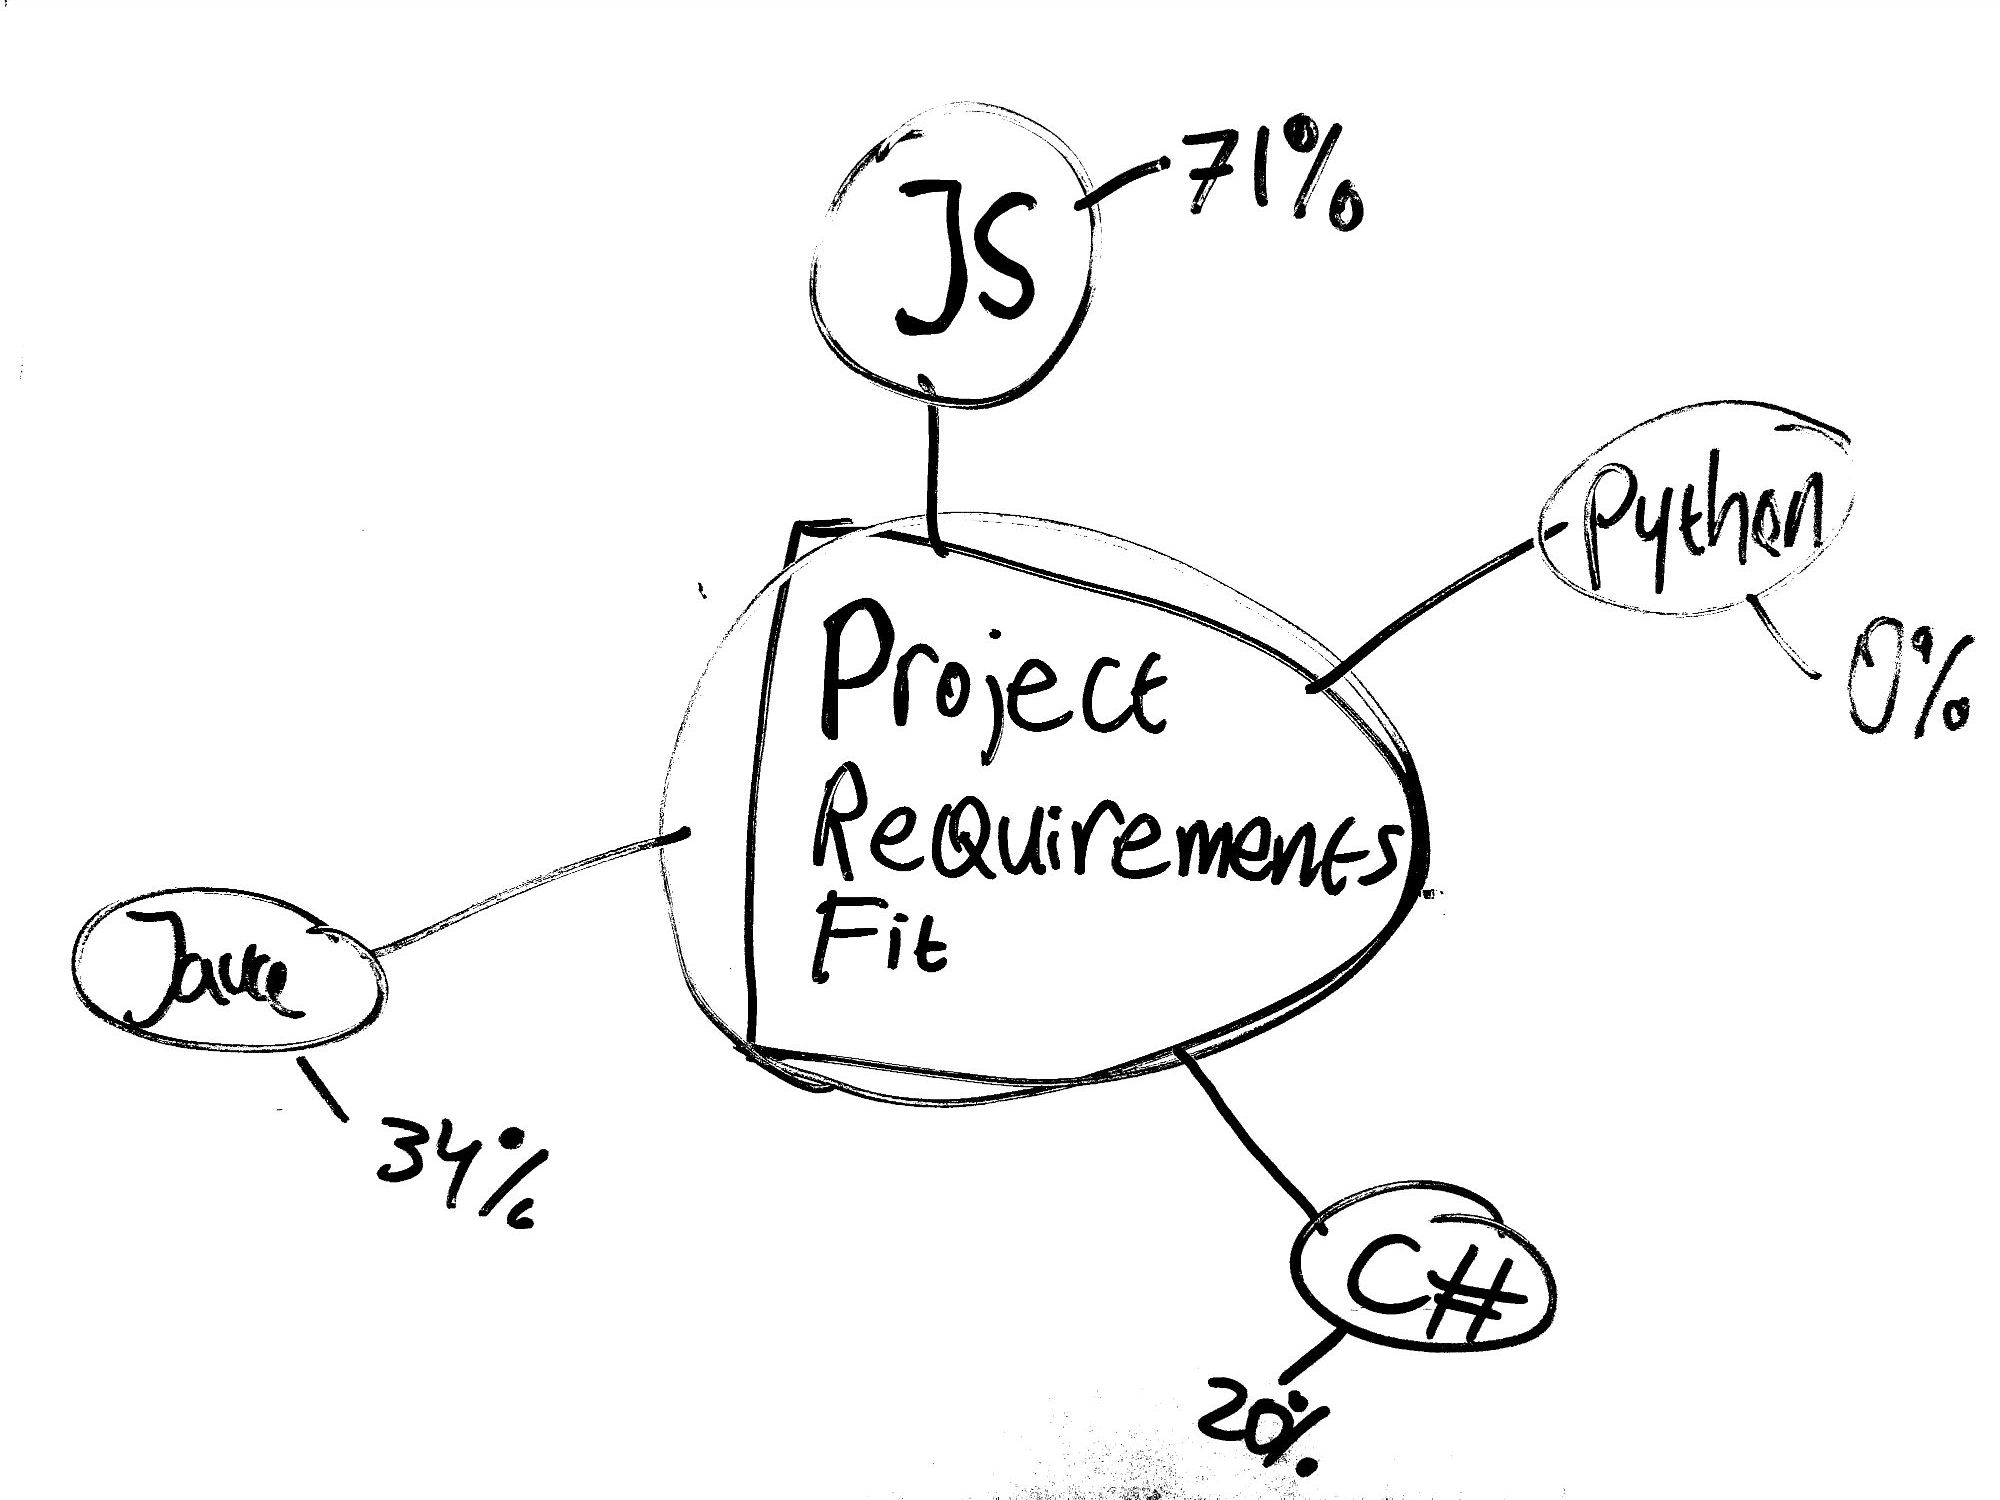 JS
71%
Python
0%
Project
Requirements
Fit
Java
34%
C#
20%